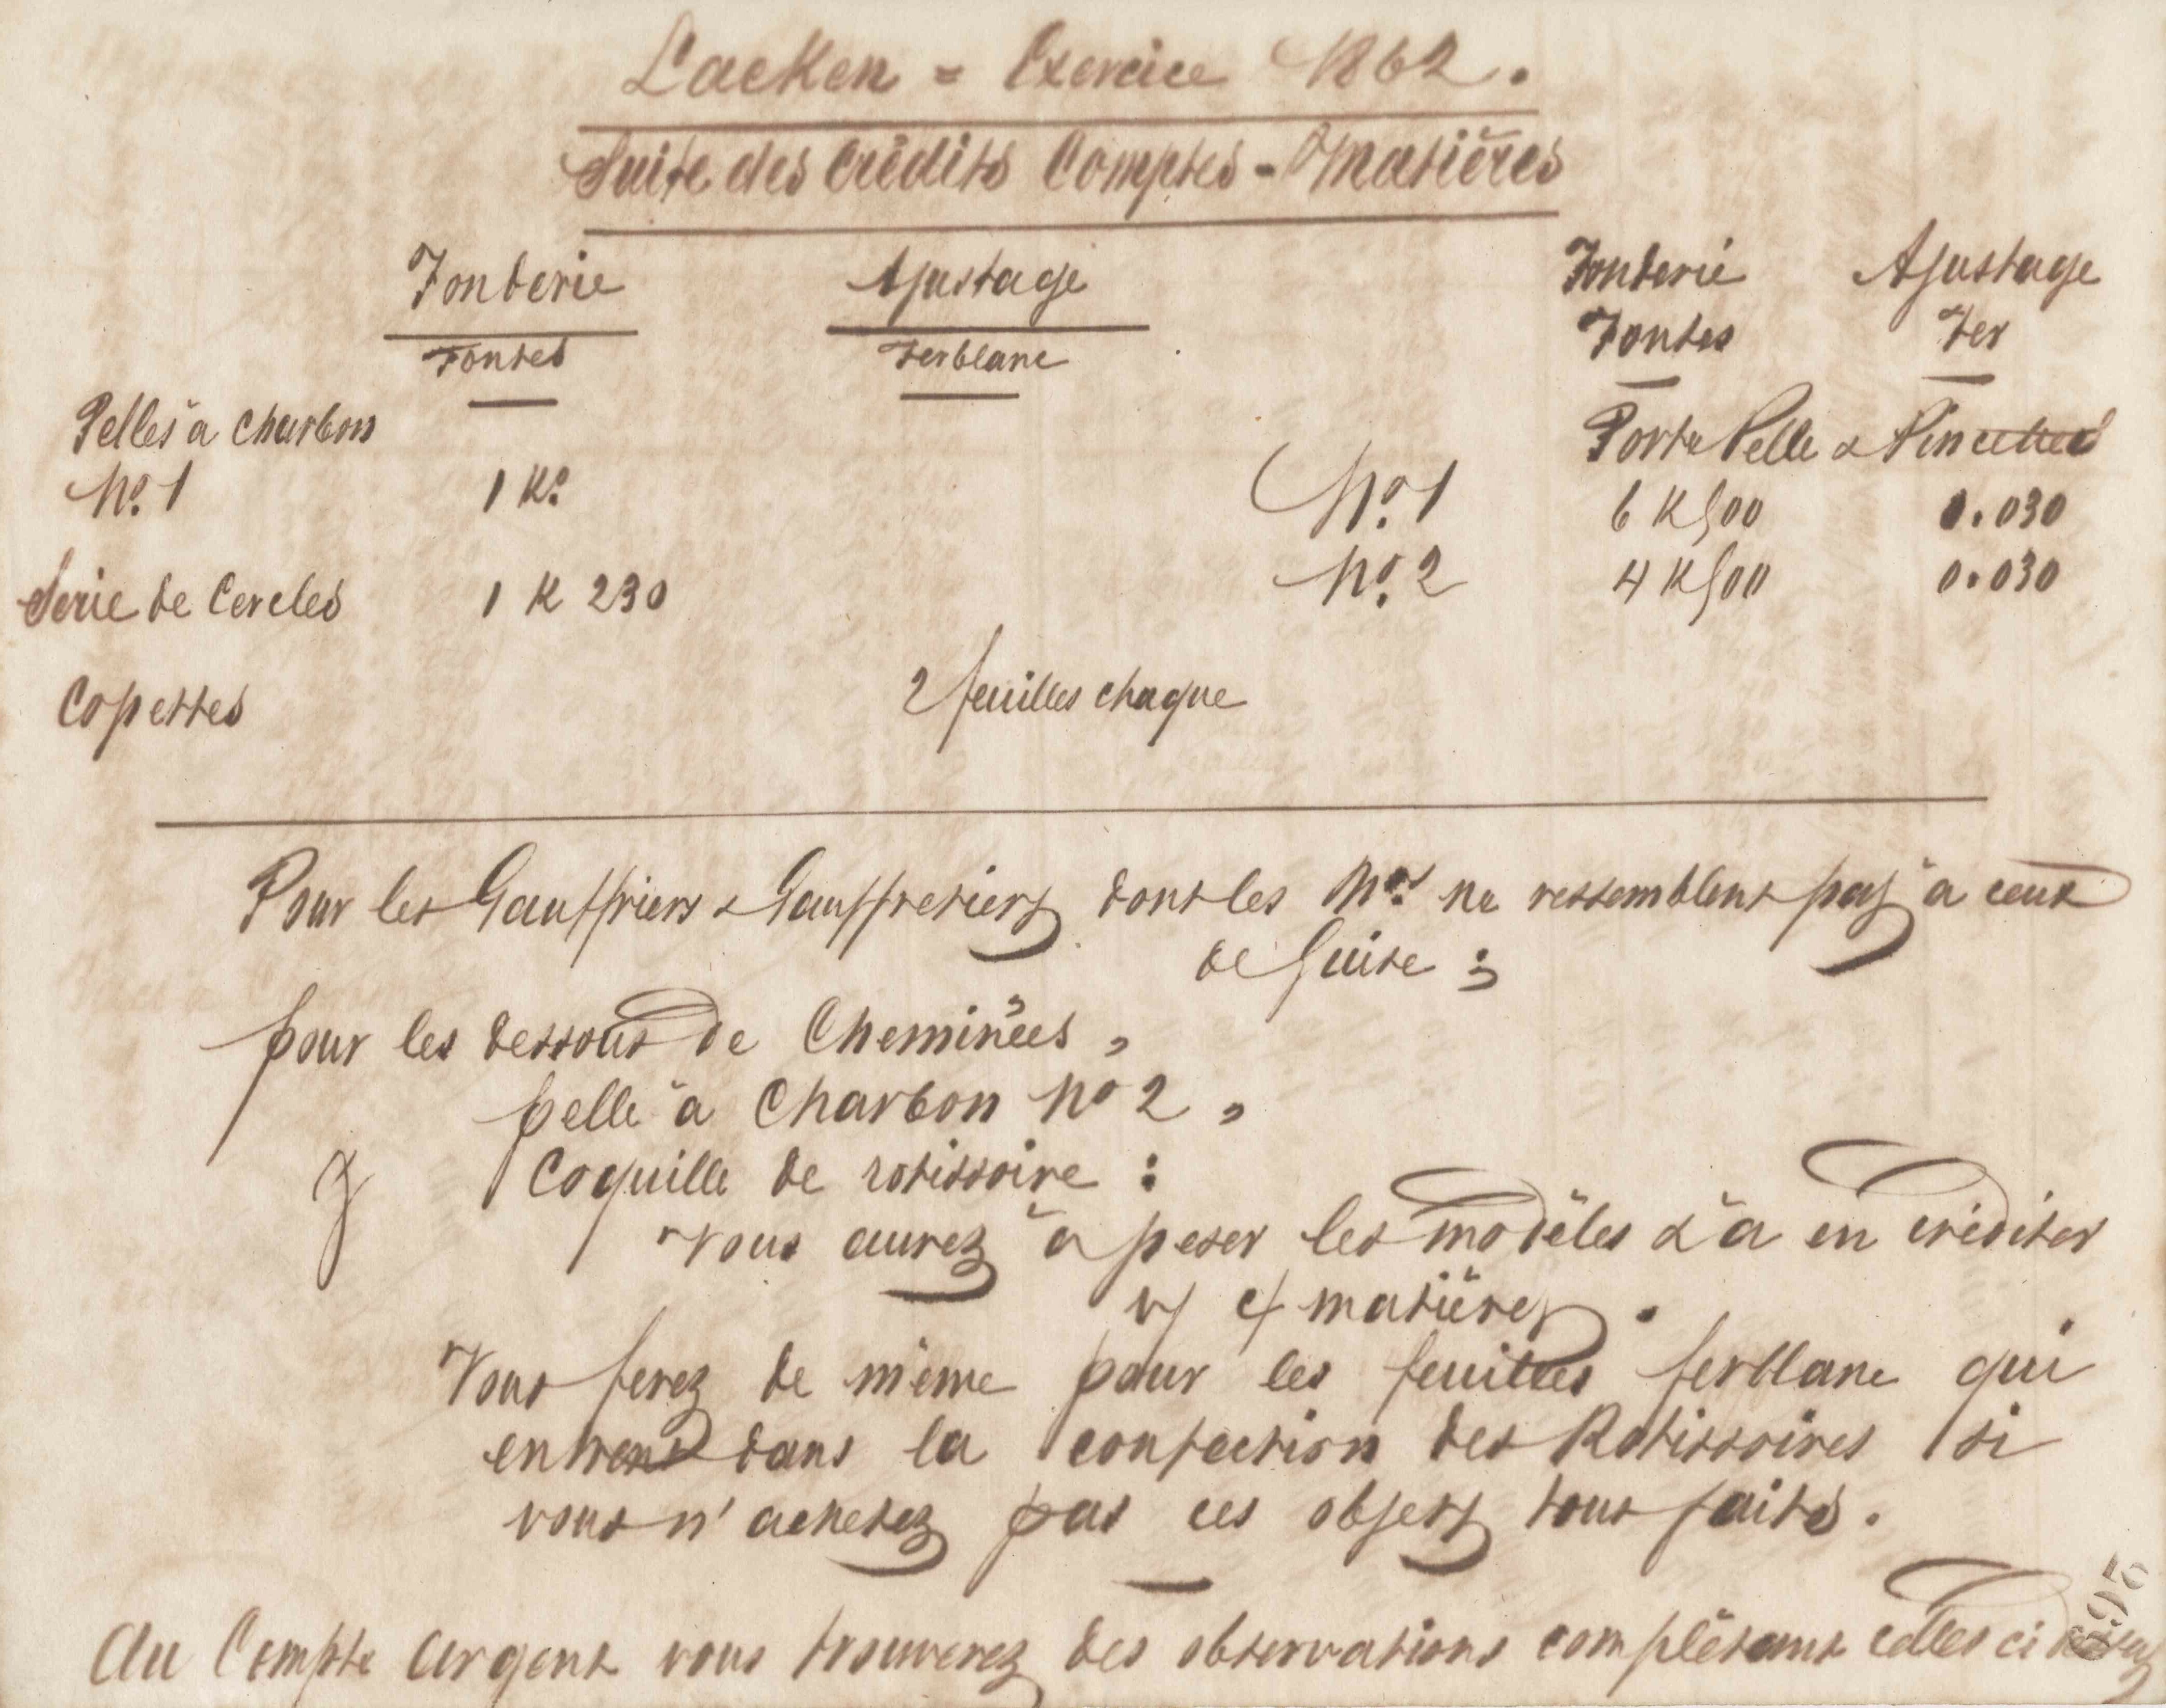 Laeken = Exercice 1862.
Suite des Crédits Comptes-Matières
Fonderie Ajustage Fonderie Ajustage
Fontes Ferblanc Fontes Fer
Pelles à charbon Porte Pelle & Pincettes
No. 1 1 Ko. No. 1 6 K 500 0.030
Serie de Cercles 1 K 230 No. 2 4 K 500 0.030
Copettes 2 feuilles chaque
Pour les Gauffriers & Gauffretiers dont les Nos ne ressemblent pas à ceux
de Guise ;
pour les dessous de Cheminées,
pelle à Charbon No 2,
Coquille de rotissoire :
vous aurez à peser les modèles & à en créditer
v/ c/ matières.
Vous ferez de même pour les feuilles ferblanc qui
entrent dans la confection des Rotissoires si
vous n'achetez pas ces objets tout faits.
Au Compte argent vous trouverez des observations complétant celles ci
695